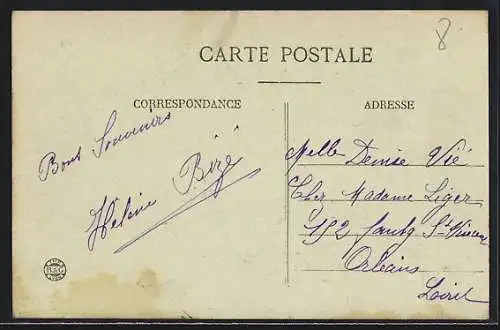 8
CARTE POSTALE
CORRESPONDANCE
ADRESSE
Bons Souvenirs
Hélène Bizé
Melle Denise Vié
Chez Madame Liger
152 faubg St Vincent
Orléans
Loiret
B&G